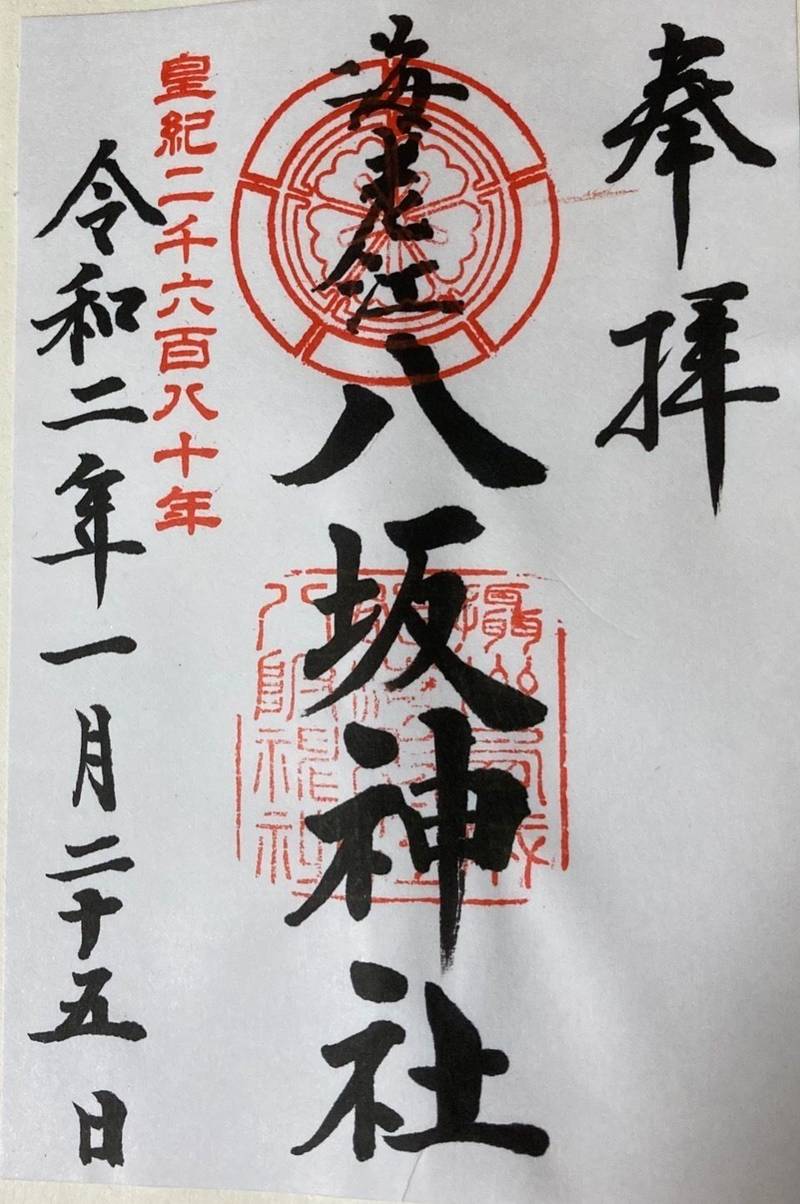 奉拝
海老江八坂神社
皇紀二千六百八十年
令和二年一月二十五日